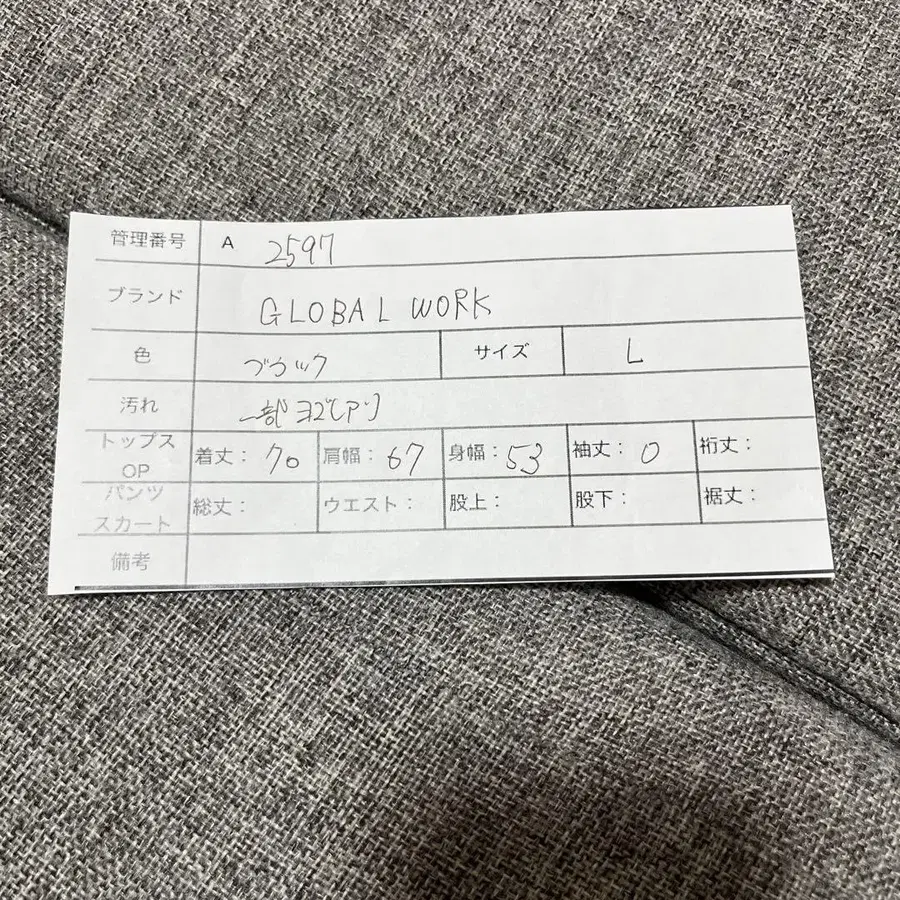 管理番号 A 2597
ブランド GLOBAL WORK
色 ブラック サイズ L
汚れ 一部ヨゴレアリ
トップス
OP
着丈: 70 肩幅: 67 身幅: 53 袖丈: 0 裄丈:
パンツ
スカート
総丈: ウエスト: 股上: 股下: 裾丈:
備考